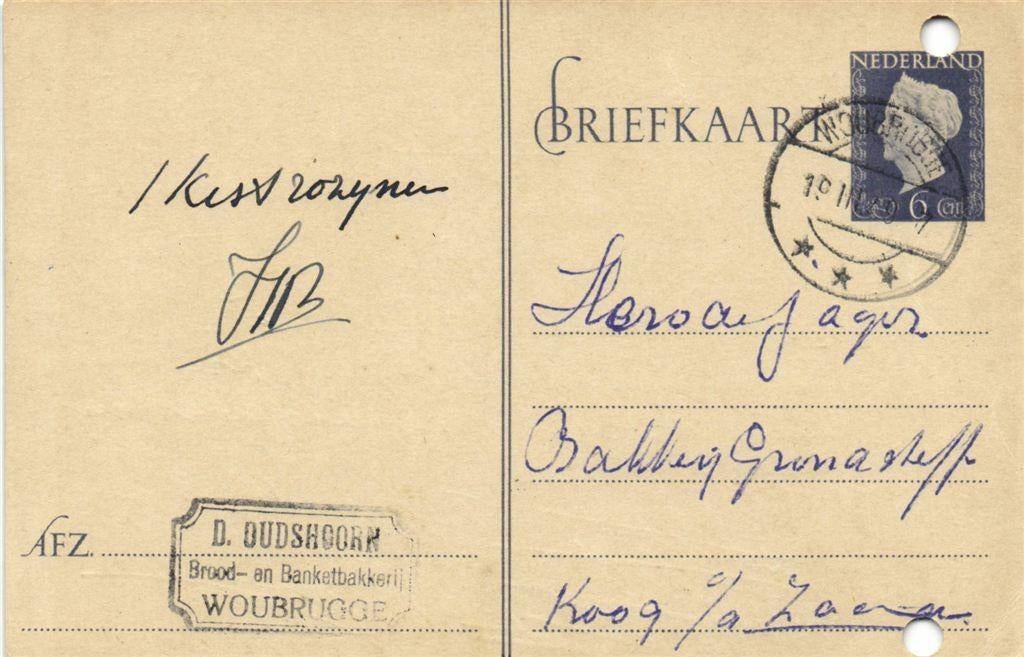 1 Kist rozynen
AFZ.
D. OUDSHOORN
Brood- en Banketbakkerij
WOUBRUGGE
BRIEFKAART
NEDERLAND
6 CNT
WOUBRUGGE
19 III
7
de Jager
Koog a/d Zaan